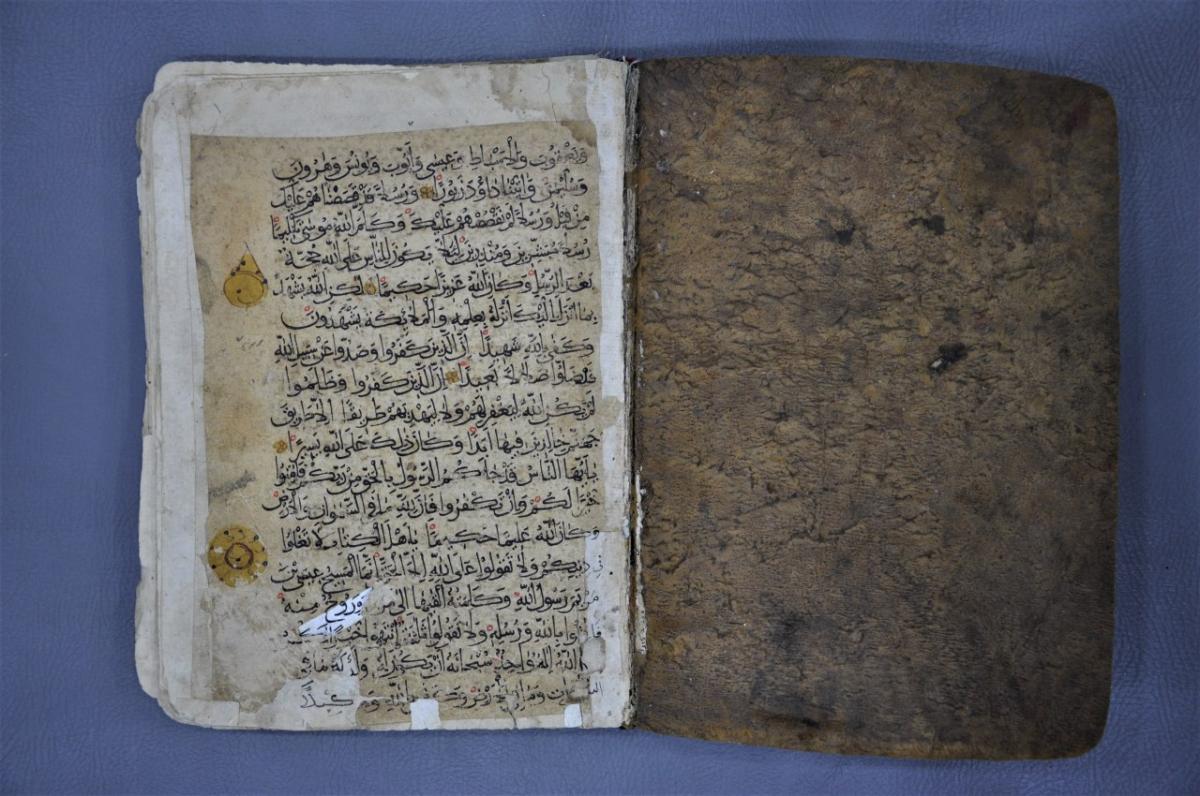 ويعقوب والاسباط وعيسى وأيوب ويونس وهرون
وسليمن وآتينا داود زبورا ورسلا قد قصصناهم عليك
من قبل ورسلا لم نقصصهم عليك وكلم الله موسى تكليما
رسلا مبشرين ومنذرين ليلا يكون للناس على الله حجة
بعد الرسل وكان الله عزيزا حكيما لكن الله يشهد
بما انزل اليك أنزله بعلمه والملائكة يشهدون
وكفى بالله شهيدا إن الذين كفروا وصدوا عن سبيل الله
قد ضلوا ضلالا بعيدا إن الذين كفروا وظلموا
لم يكن الله ليغفر لهم ولا ليهديهم طريقا إلا طريق
جهنم خالدين فيها أبدا وكان ذلك على الله يسيرا
يا أيها الناس قد جاكم الرسول بالحق من ربكم فآمنوا
خيرا لكم وإن تكفروا فإن لله ما في السموات والأرض
وكان الله عليما حكيما يأهل الكتاب لا تغلوا
في دينكم ولا تقولوا على الله إلا الحق إنما المسيح عيسى بن
مريم رسول الله وكلمته ألقيها إلى مر وروح منه
فامنوا بالله ورسله ولا تقولوا ثلثة انتهوا خيرا لكم
الله إله واحد سبحانه أن يكون له ولد له ما في
وما في الأرض وكفى بالله وكيلا